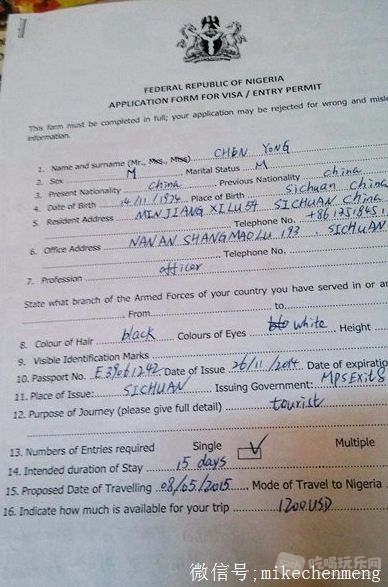 FEDERAL REPUBLIC OF NIGERIA
APPLICATION FORM FOR VISA / ENTRY PERMIT
This form must be completed in full; your application may be rejected for wrong and misle
information.
1. Name and surname (Mr., Mrs., Miss) CHEN YONG
2. Sex M Marital Status M
3. Present Nationality China Previous Nationality China
4. Date of Birth 14/11/1974 Place of Birth Sichuan China
5. Resident Address MINJIANG XILU 54 SICHUAN China
Telephone No. +861351845
6. Office Address NANAN SHANGMAO LU 193 . SICHUAN
Telephone No.
7. Profession officer
State what branch of the Armed Forces of your country you have served in or ar
From to
8. Colour of Hair black Colours of Eyes white Height
9. Visible Identification Marks
10. Passport No. E37061242 Date of Issue 26/11/2014 Date of expiration
11. Place of Issue: SICHUAN Issuing Government: MPSExit&
12. Purpose of Journey (please give full detail) tourist
13. Numbers of Entries required Single ✓ Multiple
14. Intended duration of Stay 15 days
15. Proposed Date of Travelling 08/05/2015 Mode of Travel to Nigeria
16. Indicate how much is available for your trip 1200USD
吃喝玩乐网
微信号:mikechenmeng